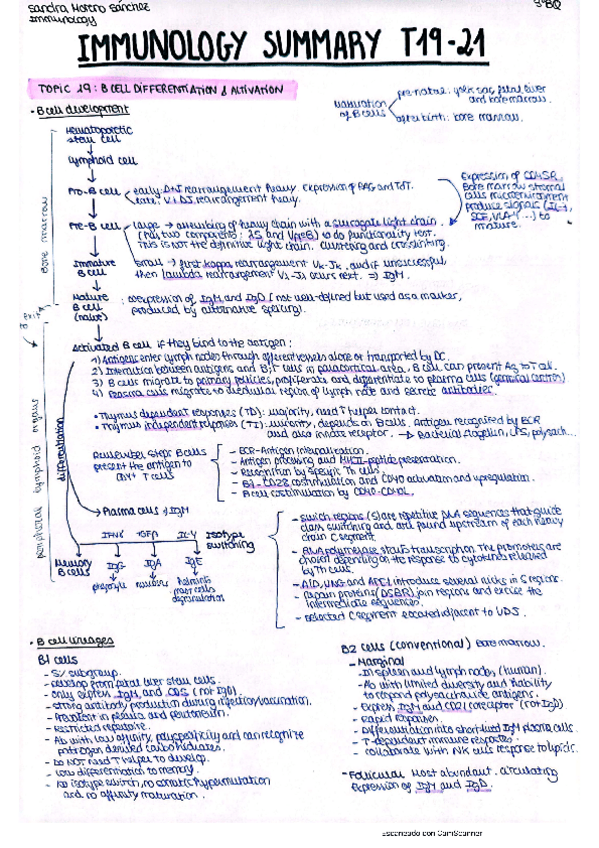 Sandra Moreno Sánchez
Immunology
3ºBQ
IMMUNOLOGY SUMMARY T19-21
TOPIC 19: B CELL DIFFERENTIATION & ACTIVATION
· B cell development
Maturation of B cells
prenatal: yolk sac, fetal liver and bone marrow.
after birth: bone marrow.
Bone marrow
Hematopoietic stem cell
Lymphoid cell
Pro-B cell
early: D-J rearrangement heavy. Expression of RAG and TdT.
late: V-DJ rearrangement heavy.
Expression of CD45R.
Bone marrow stromal
cells microenvironment
produce signals (IL-7,
SCF, VLA-4 ...) to
mature.
Pre-B cell
Large → assembling of heavy chain with a surrogate light chain
(has two components: λ5 and VpreB) to do functionality test.
This is not the definitive light chain. Clustering and crosslinking.
Immature B cell
Small → first kappa rearrangement Vκ-Jκ, and if unsuccessful,
then lambda rearrangement Vλ-Jλ occurs next. ⇒ IgM.
Mature B cell (naive)
: coexpression of IgM and IgD (not well-defined but used as a marker,
produced by alternative splicing).
exit
Peripheral lymphoid organs
differentiation
Activated B cell if they bind to the antigen:
1) Antigens enter lymph nodes through afferent vessels alone or transported by DC.
2) Interaction between antigens and B,T cells in paracortical area. B cell can present Ag to T cell.
3) B cells migrate to primary follicles, proliferate and differentiate to plasma cells (germinal centres)
4) Plasma cells migrate to medullar region of lymph node and secrete antibodies.
· Thymus dependent responses (TD): majority, need T helper contact.
· Thymus independent responses (TI): minority, depends on B cells. Antigen recognised by BCR
and also innate receptor. → Bacterial flagellin, LPS, polysach...
Remember steps B cells
present the antigen to
CD4+ T cells
- BCR-Antigen internalization.
- Antigen processing and MHCII-peptide presentation.
- Recognition by specific Th cells.
- B7-CD28 costimulation and CD40 activation and upregulation.
- B cell costimulation by CD40-CD40L.
Plasma cells → IgM
IFNγ TGFβ IL-4 Isotype switching
Memory B cells
IgG IgA IgE
phagocyte
helminth mast cells degranulation
- Switch regions (S) are repetitive DNA sequences that guide
class switching and are found upstream of each heavy
chain C segment.
- RNA polymerase starts transcription. The promoters are
chosen depending on the response to cytokines released
by Th cells.
- AID, UNG and APE1 introduce several nicks in S regions.
- Repair proteins (DSBR) join regions and excise the
intermediate sequences.
- Selected C segment located adjacent to VDJ.
· B cell lineages
B1 cells
- 5% subgroup.
- Develop from fetal liver stem cells.
- Only express IgM, and CD5 (not IgD).
- Strong antibody production during infection/vaccination.
- Prevalent in pleura and peritoneum.
- Restricted repertoire.
- Ab with low affinity, polyspecificity and can recognize
pathogen derived carbohidrates.
- Do NOT need T helper to develop.
- Low differentiation to memory.
- No isotype switch, no somatic hypermutation
and no affinity maturation.
B2 cells (conventional) Bone marrow.
- Marginal
- In spleen and lymph nodes (human).
- Ab with limited diversity and hability
to respond polysaccharide antigens.
- Express IgM and CD21 coreceptor (not IgD)
- Rapid responses.
- Differentiation into short-lived IgM plasma cells.
- T-dependent immune responses.
- Collaborate with NK cells response to lipids.
- Follicular Most abundant. circulating
Expression of IgM and IgD.
Escaneado con CamScanner